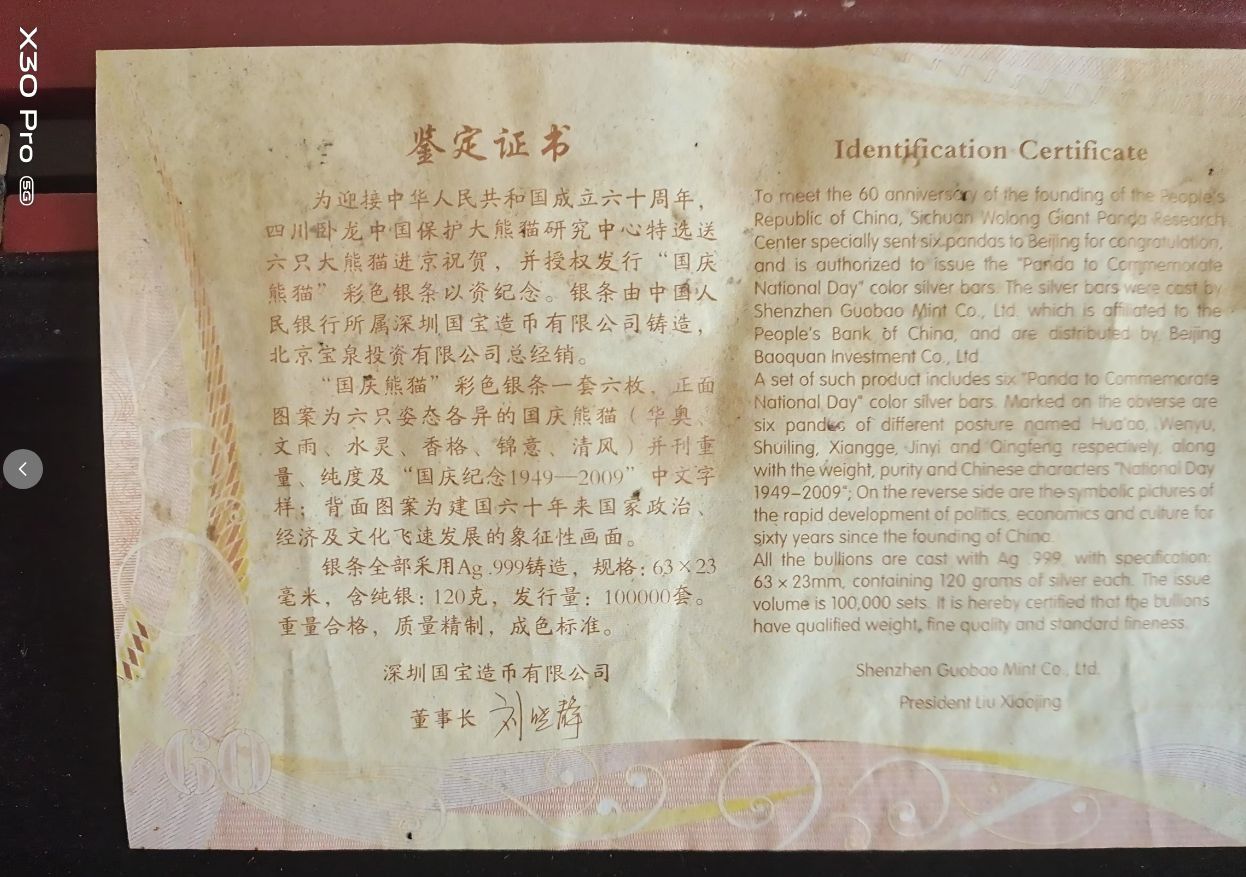 X30 Pro 5G
鉴定证书
为迎接中华人民共和国成立六十周年，
四川卧龙中国保护大熊猫研究中心特选送
六只大熊猫进京祝贺，并授权发行“国庆
熊猫”彩色银条以资纪念。银条由中国人
民银行所属深圳国宝造币有限公司铸造，
北京宝泉投资有限公司总经销。
“国庆熊猫”彩色银条一套六枚，正面
图案为六只姿态各异的国庆熊猫（华奥、
文雨、水灵、香格、锦意、清风）并刊重
量、纯度及“国庆纪念1949—2009”中文字
样；背面图案为建国六十年来国家政治、
经济及文化飞速发展的象征性画面。
银条全部采用Ag .999铸造，规格：63×23
毫米，含纯银：120克，发行量：100000套。
重量合格，质量精制，成色标准。
深圳国宝造币有限公司
董事长 刘晓静
60
Identification Certificate
To meet the 60 anniversary of the founding of the People's
Republic of China, Sichuan Wolong Giant Panda Research
Center specially sent six pandas to Beijing for congratulation,
and is authorized to issue the "Panda to Commemorate
National Day" color silver bars. The silver bars were cast by
Shenzhen Guobao Mint Co., Ltd. which is affiliated to the
People's Bank of China, and are distributed by Beijing
Baoquan Investment Co., Ltd.
A set of such product includes six "Panda to Commemorate
National Day" color silver bars. Marked on the obverse are
six pandas of different posture named Hua'ao, Wenyu,
Shuiling, Xiangge, Jinyi and Qingfeng respectively, along
with the weight, purity and Chinese characters "National Day
1949–2009"; On the reverse side are the symbolic pictures of
the rapid development of politics, economics and culture for
sixty years since the founding of China.
All the bullions are cast with Ag .999, with specification:
63 × 23mm, containing 120 grams of silver each. The issue
volume is 100,000 sets. It is hereby certified that the bullions
have qualified weight, fine quality and standard fineness.
Shenzhen Guobao Mint Co., Ltd.
President Liu Xiaojing